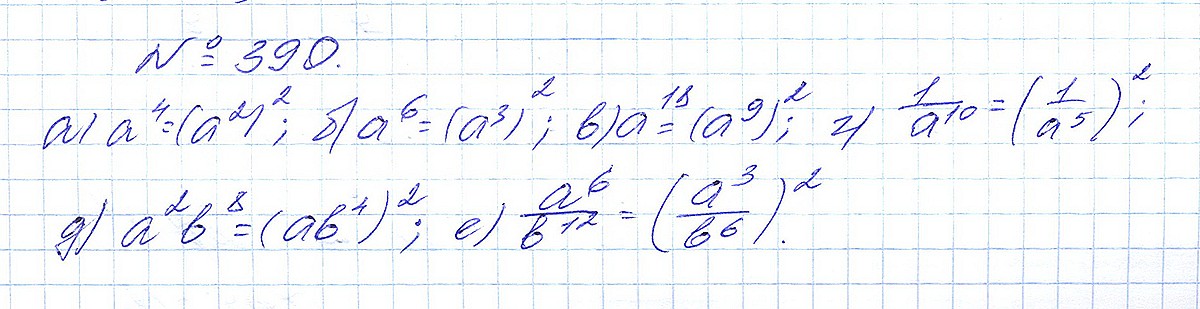 № 390.
а) a⁴=(a²)²; б) a⁶=(a³)²; в) a¹⁸=(a⁹)²; г) 1/a¹⁰=(1/a⁵)²;
д) a²b⁸=(ab⁴)²; е) a⁶/b¹²=(a³/b⁶)².